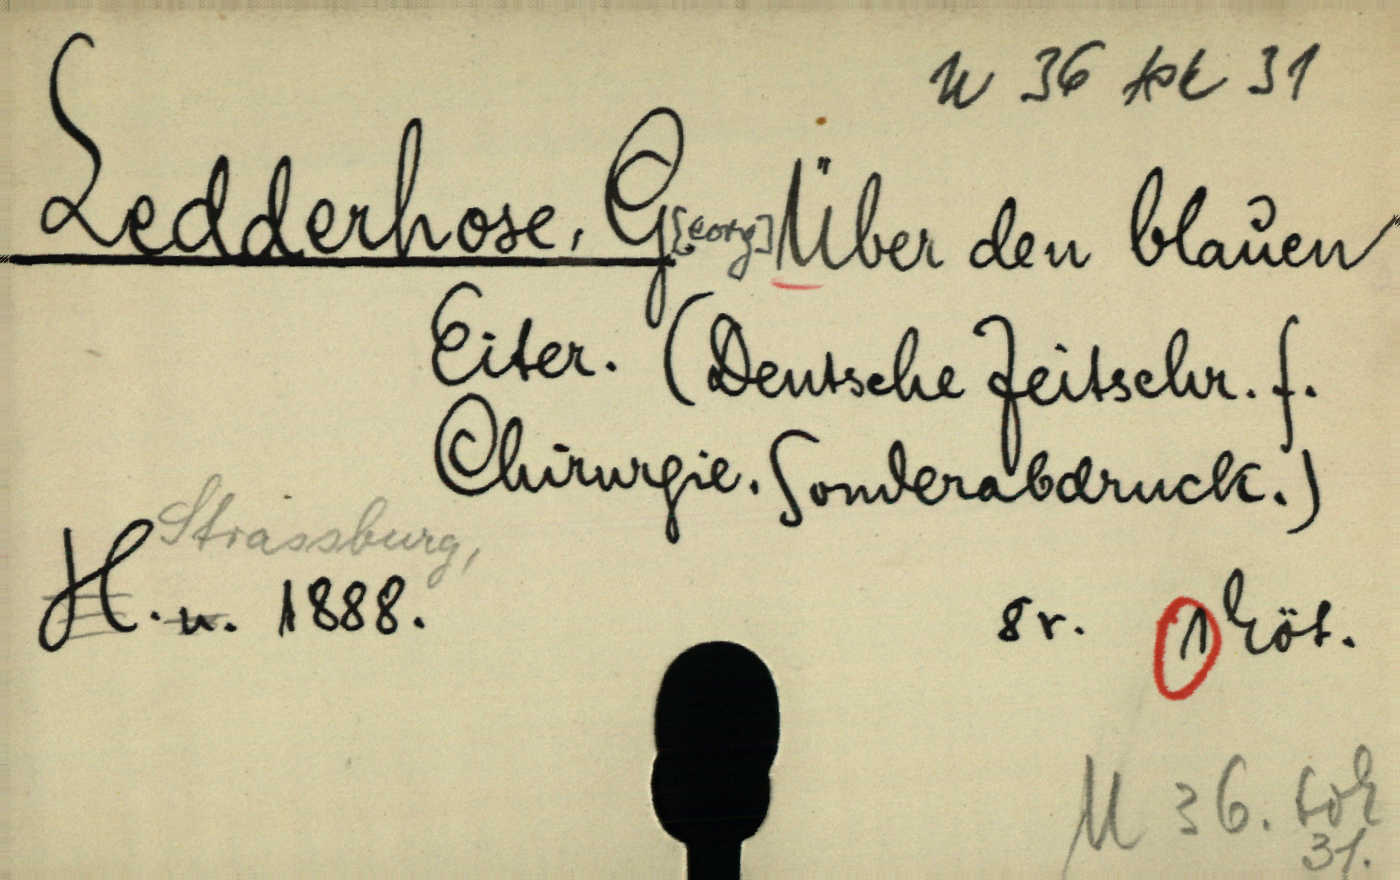 U 36 tok 31
Ledderhose, G[eorg] Über den blauen
Eiter. (Deutsche Zeitschr. f.
Chirurgie. Sonderabdruck.)
Strassburg,
H. n. 1888. 8r. 1 köt.
U 36. tok
31.